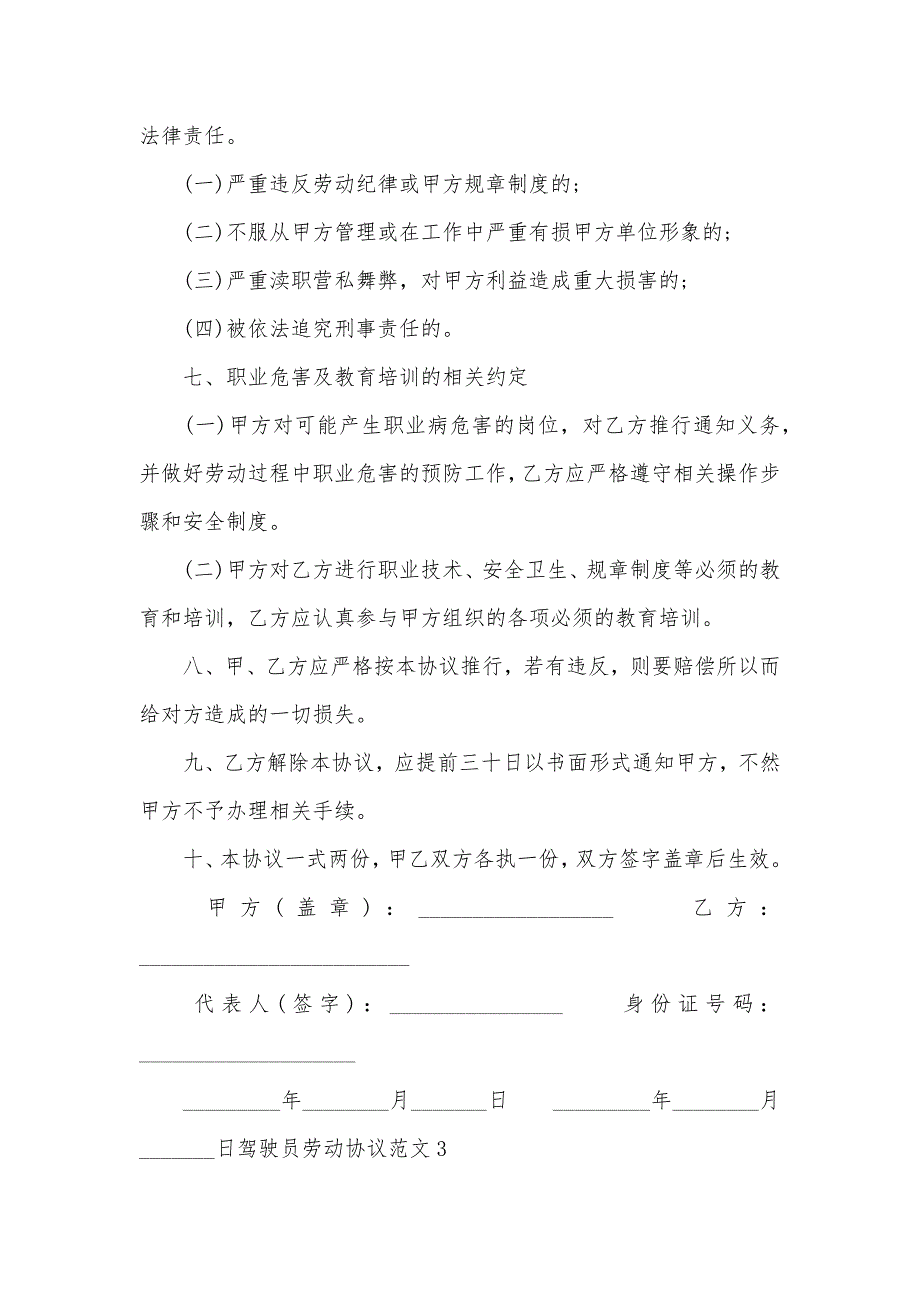 法律责任。
(一)严重违反劳动纪律或甲方规章制度的;
(二)不服从甲方管理或在工作中严重有损甲方单位形象的;
(三)严重渎职营私舞弊，对甲方利益造成重大损害的;
(四)被依法追究刑事责任的。
七、职业危害及教育培训的相关约定
(一)甲方对可能产生职业病危害的岗位，对乙方推行通知义务，
并做好劳动过程中职业危害的预防工作，乙方应严格遵守相关操作步
骤和安全制度。
(二)甲方对乙方进行职业技术、安全卫生、规章制度等必须的教
育和培训，乙方应认真参与甲方组织的各项必须的教育培训。
八、甲、乙方应严格按本协议推行，若有违反，则要赔偿所以而
给对方造成的一切损失。
九、乙方解除本协议，应提前三十日以书面形式通知甲方，不然
甲方不予办理相关手续。
十、本协议一式两份，甲乙双方各执一份，双方签字盖章后生效。
甲方(盖章)：__________________ 乙方：
_________________________
代表人(签字)：________________ 身份证号码：
____________________
_________年________月_______日 _________年________月
_______日驾驶员劳动协议范文3